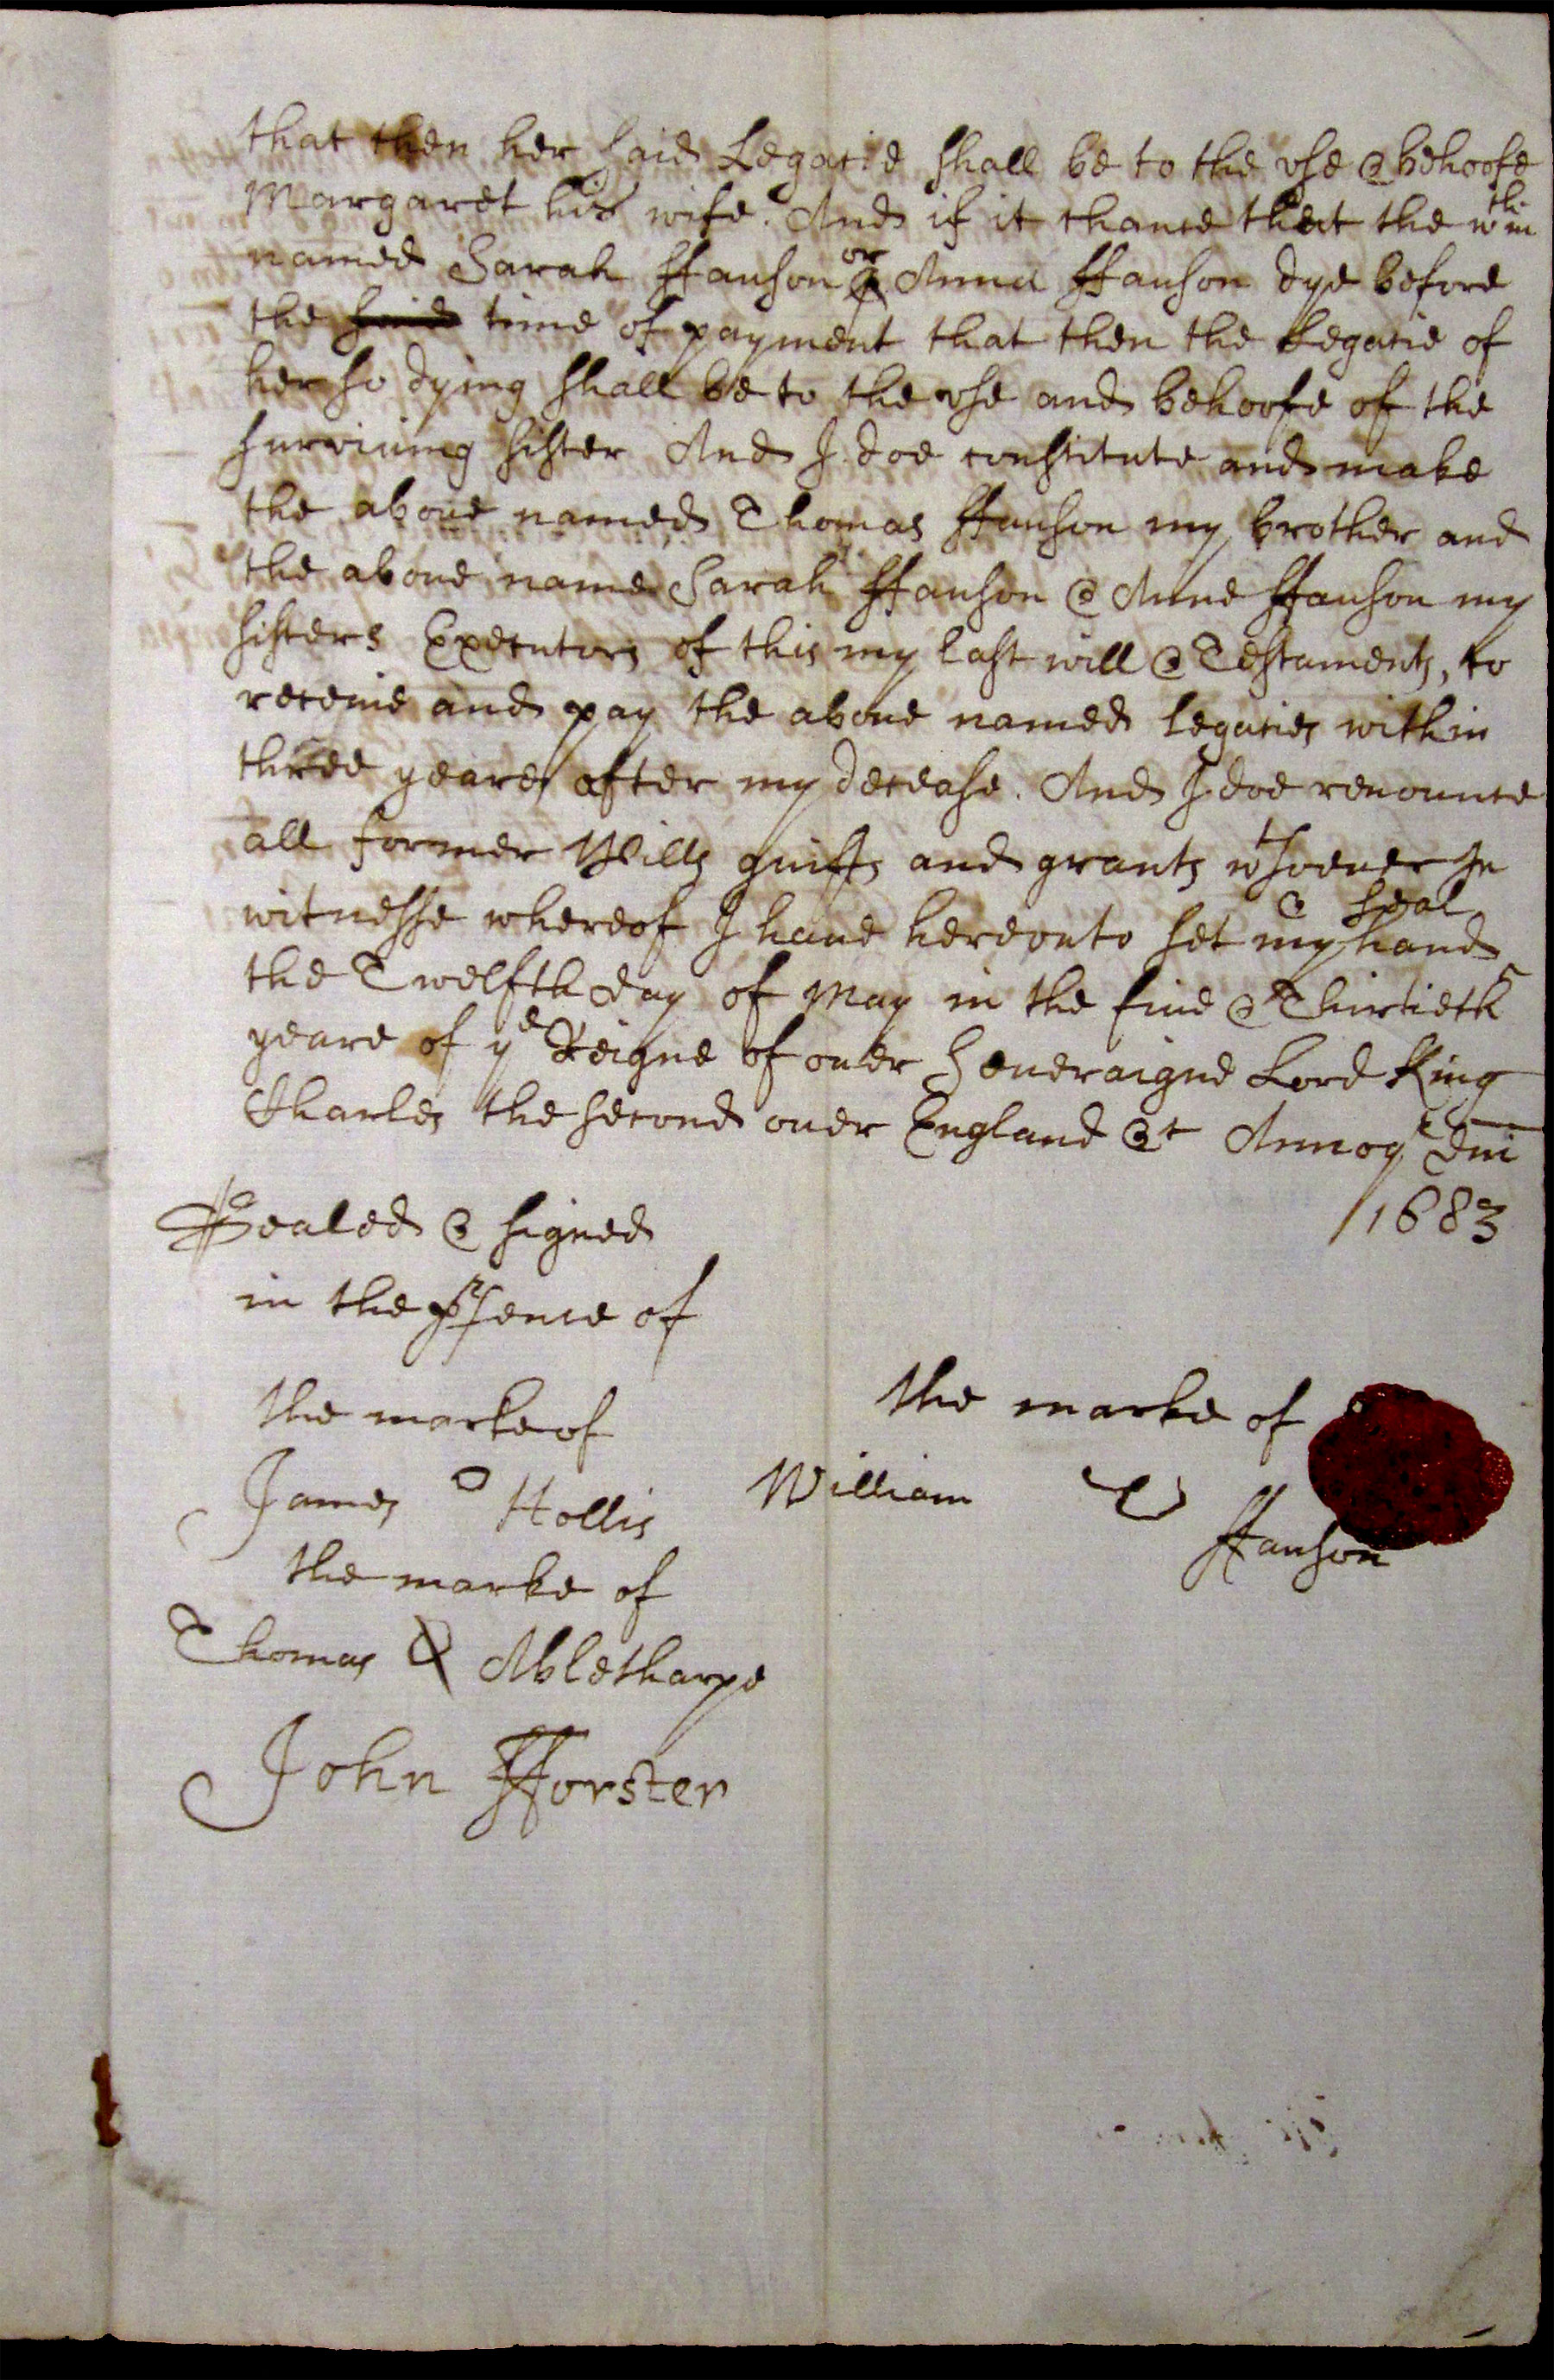 that then her said Legacie shall be to the vse & behoofe
Margaret his wife. And if it chance that the wthin
named Sarah Hanson or Anna Hanson dye before
the said time of payment that then the Legacie of
her so dying shall be to the vse and behoofe of the
surviuing sister And I doe constitute and make
the aboue named Thomas Hanson my brother and
the aboue name Sarah Hanson & Anne Hanson my
sisters Executors of this my last will & Testament, to
receiue and pay the aboue named legacies within
three yeares after my decease. And I doe renounce
all former Wills guifts and grants wtsoeuer In
witnesse whereof I haue herevnto set my hand & seal
the Twelfth day of May in the fiue & Thirtieth
yeare of ye Reigne of ouer Soueraigne Lord King
Charles the second ouer England &c Annoq dni
1683
Sealed & signed
in the prsence of
the marke of
James Hollis
the marke of
William Hanson
the marke of
Thomas Abletharpe
John fforster